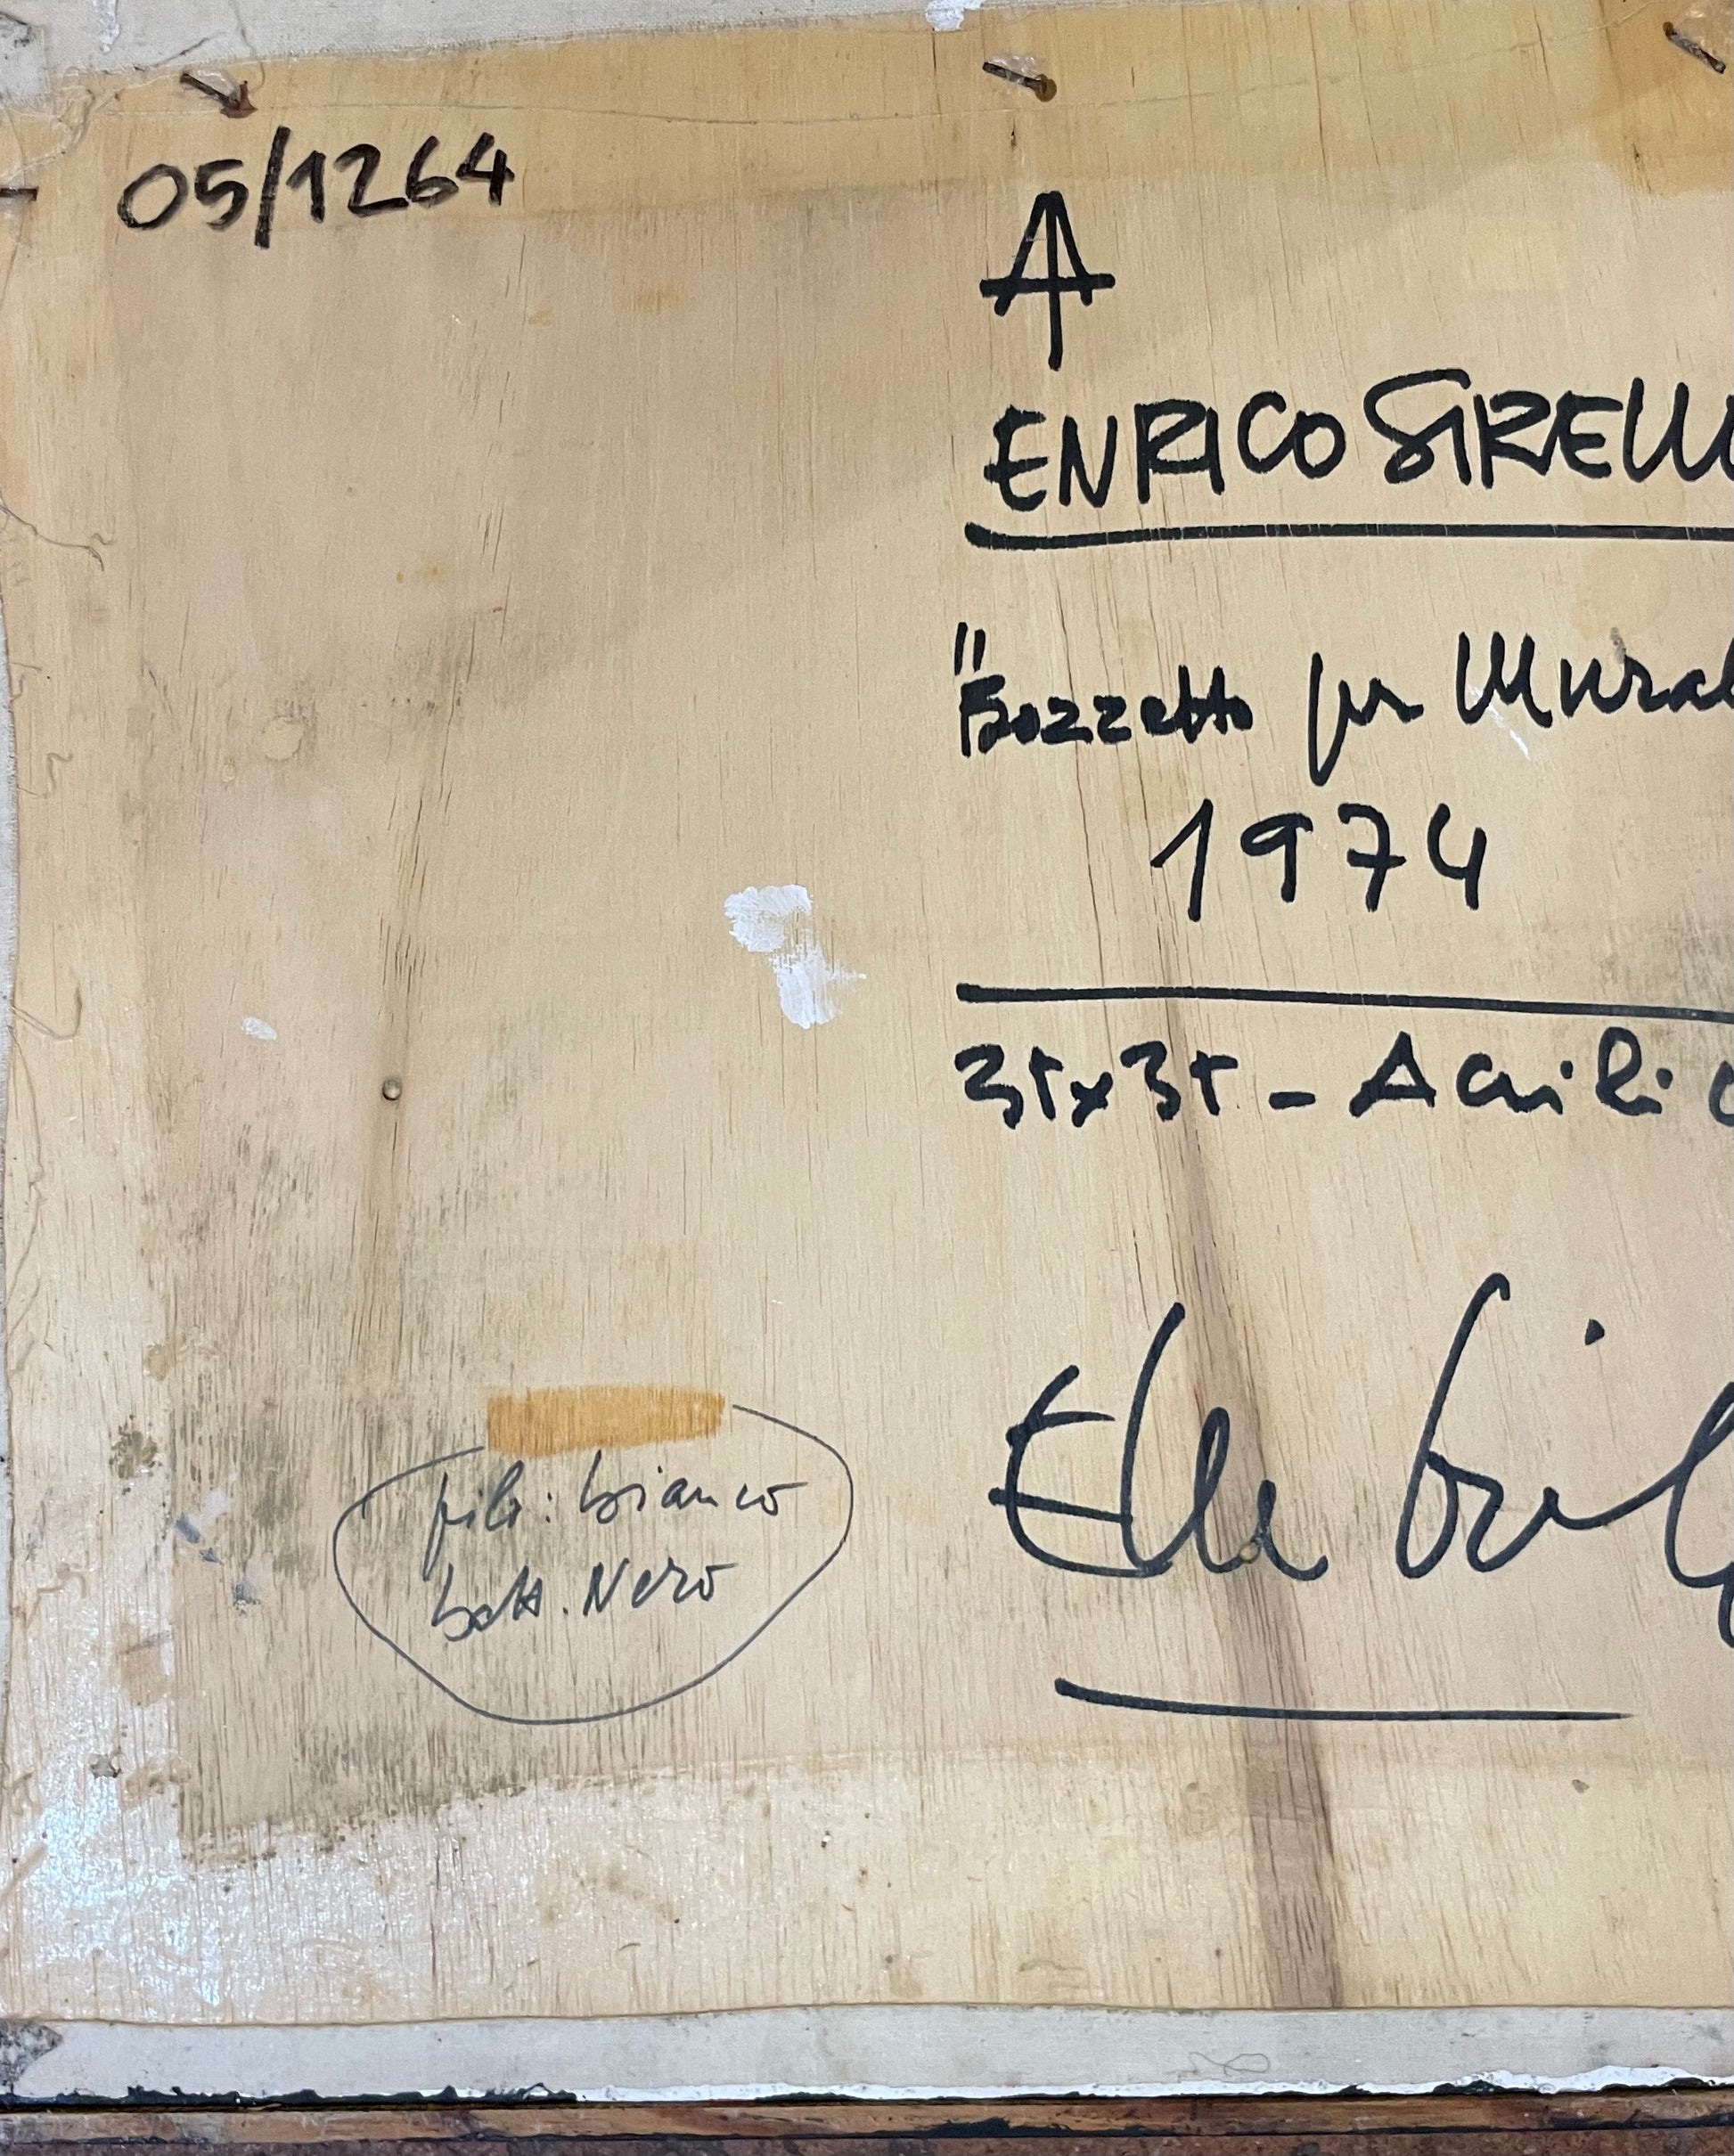 05/1264
A
ENRICO SIRELLI
"Bozzetto per Mural
1974
35x35 - Acrilic
filo: bianco
batt. Nero